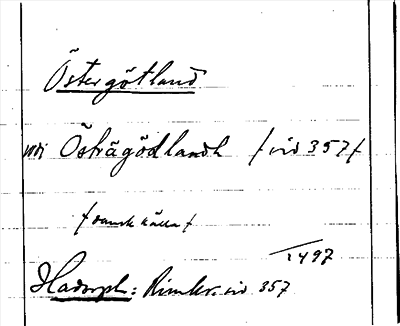 Östergötland
uti Östrägödlandh /sid 357/
/dansk källa/
1497
Hadorph: Rimkr. sid 357